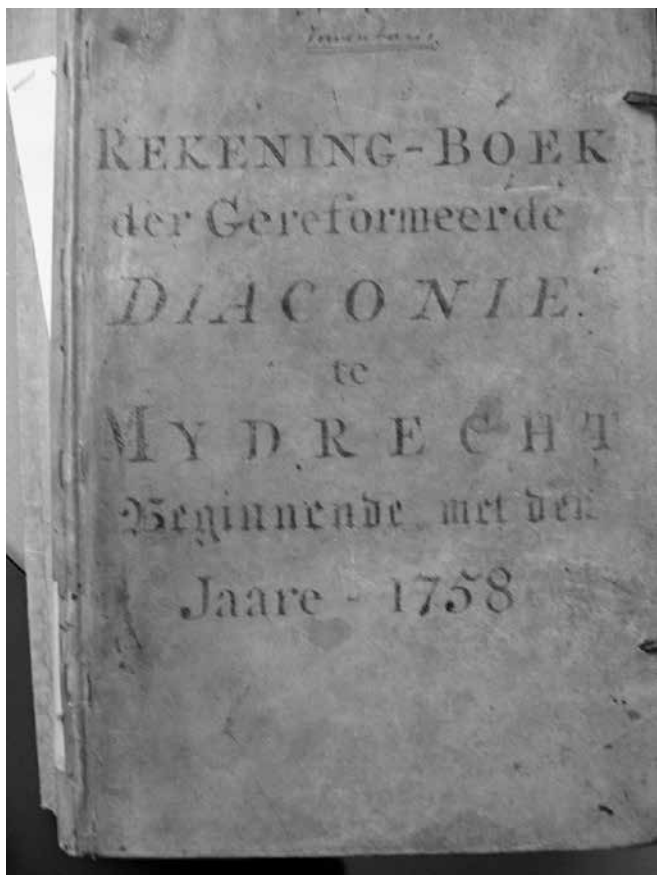 REKENING-BOEK
der Gereformeerde
DIACONIE.
te
MYDRECHT
Beginnende met den
Jaare - 1758